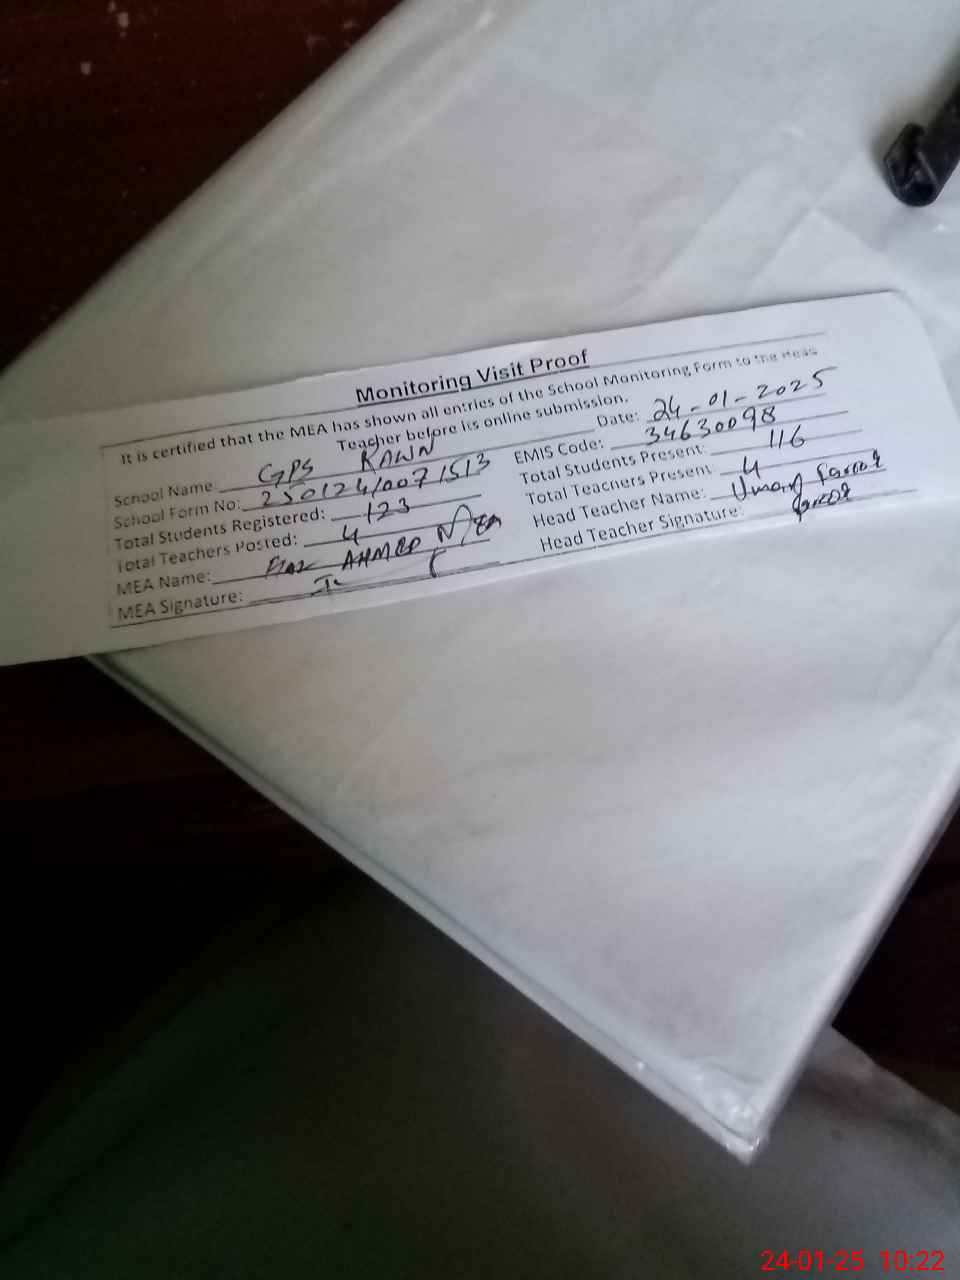 Monitoring Visit Proof
It is certified that the MEA has shown all entries of the School Monitoring Form to the Head
Teacher before its online submission.
School Name GPS RAWN Date: 24-01-2025
School Form No: 2501241007 1513 EMIS Code: 34630098
Total Students Registered: 123 Total Students Present: 116
Total Teachers Posted: 4 Total Teachers Present 4
MEA Name: AHMED MEA Head Teacher Name: Umar Farooq
MEA Signature: Head Teacher Signature: Farooq
24-01-25 10:22